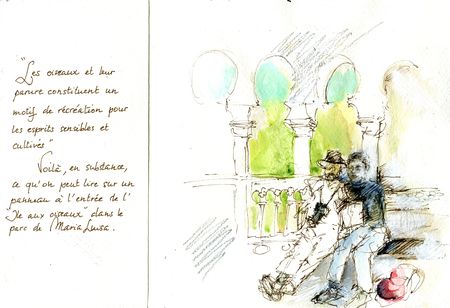 "Les oiseaux et leur
parure constituent un
motif de récréation pour
les esprits sensibles et
cultivés"
Voilà, en substance,
ce qu'on peut lire sur un
panneau à l'entrée de l'
"Ile aux oiseaux" dans le
parc de Maria Luisa.